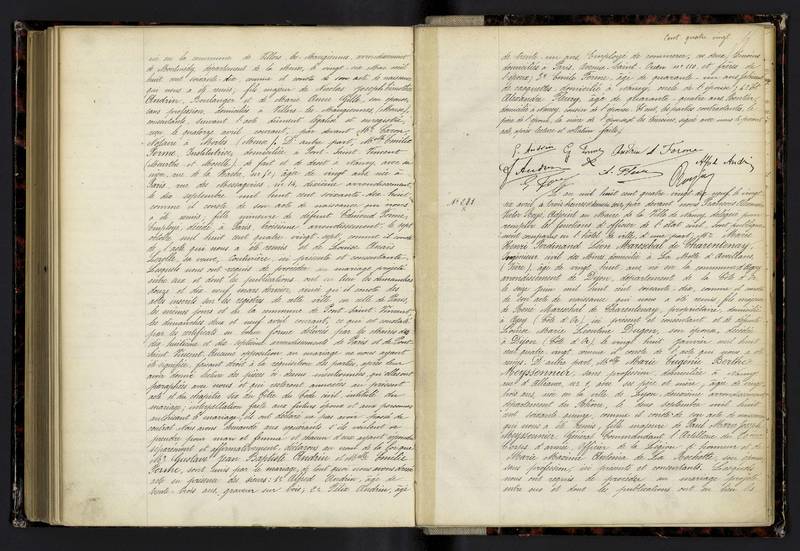 né en la commune de Villers les Mangiennes, arrondissement
de Montmédy, département de la Meuse, le vingt six Mai mil
huit cent soixante dix, comme il conste de son acte de naissance
qui nous a été remis, fils majeur de Nicolas Joseph
Andrin, Boulanger et de Marie Anne Gille, son épouse,
sans profession, domiciliés à Villers les Mangiennes (Meuse),
consentants, suivant l'acte dûment légalisé et enregistré,
reçu le quatorze avril courant, par devant Me
Notaire à (Meuse). D'autre part, Mlle Emilie
Ferme, Institutrice, domiciliée à Pont-Saint-Vincent
(Meurthe et Moselle) de fait et de droit à Nancy, avec sa
mère, rue de la , âgée de vingt ans née à
Paris, rue des Messageries, no 14, dixième arrondissement,
le dix septembre mil huit cent soixante dix huit
comme il conste de son acte de naissance qui nous
a été remis, fille mineure de défunt Edmond Ferme,
Employé, décédé à Paris, troisième arrondissement, le sept
mil huit cent quatre vingt sept, comme il conste
de l'acte qui nous a été remis et de Louise
, sa veuve, Couturière, ici présente et consentante.
Lesquels nous ont requis de procéder au mariage projeté
entre eux et dont les publications ont eu lieu les dimanches
douze et dix neuf mars dernier, ainsi qu'il conste des
actes inscrits sur les registres de cette ville, en celle de Paris,
les mêmes jours et de la commune de Pont Saint Vincent,
les dimanches deux et neuf avril courant, ce que est constaté
par les certificats en bonne forme délivrés par les Maires des
dix huitième et dix septième arrondissements de Paris et de Pont
Saint Vincent. Aucune opposition au mariage ne nous ayant
été signifiée, faisant droit à la réquisition des parties, après leur
avoir donné lecture des pièces ci dessus mentionnées, qui ont été
paraphées par nous et qui resteront annexées au présent
acte et du chapitre six du titre du Code civil, intitulé du
mariage, interpellation faite aux futurs époux et aux personnes
autorisant le mariage, ils ont déclaré ne pas avoir passé de
contrat. Nous avons demandé aux requérants s'ils veulent se
prendre pour mari et femme et chacun d'eux ayant répondu
séparément et affirmativement, déclarons au nom de la loi que
Mr. Gustave Jean Baptiste Andrin et Mlle Emilie
Ferme, sont unis par le mariage, de tout quoi nous avons dressé
acte en présence des sieurs: 1o Alfred Andrin, âgé de
trente trois ans, graveur sur bois; 2o Félix Andrin, âgé
Cent quatre vingt
de trente un ans, Employé de commerce, les deux témoins
domiciliés à Paris, avenue Saint Ouen no 110 et frères de
l'époux; 3o Emile Ferme, âgé de quarante un ans, fabricant
de casquettes, domicilié à Nancy, oncle de l'épouse; et 4o
Alexandre Fleury, âgé de quarante quatre ans, Courtier,
domicilié à Nancy, cousin de l'épouse. Et ont, les parties contractantes, le
père de l'époux, la mère de l'épouse et les témoins, signé avec nous le présent
acte, après lecture et collation faites.
G. Andrin Andrin E. Ferme
Alfred Andrin
No 281
L'an mil huit cent quatre vingt dix neuf, le vingt
six avril, à trois heures du soir, par devant nous
Victor , Adjoint au Maire de la Ville de Nancy, délégué pour
remplir les fonctions d'officier de l'état civil, sont publique-
ment comparus en l'hôtel de ville, d'une part, Mr Marie
Henri Ferdinand Léon Mareschal de Charentenay,
Ingénieur civil des Mines, domicilié à La Motte d'Aveillans
(Isère), âgé de vingt huit ans, né en la commune d'Agey
arrondissement de Dijon, département de la Côte d'Or,
le seize juin mil huit cent soixante dix, comme il conste
de son acte de naissance qui nous a été remis, fils majeur
de René Mareschal de Charentenay, propriétaire, domicilié
à Agey (Côte d'Or), ici présent et consentant et de défunte
Louise Marie Léontine Dugon, son épouse, décédée
à Dijon (Côte d'Or), le vingt huit janvier mil huit
cent quatre vingt comme il conste de l'acte qui nous a été
remis. D'autre part Mlle Marie Eugénie Berthe
Meyssonnier, sans profession, domiciliée à Nancy
rue d'Alliance, no 2, avec ses père et mère, âgée de vingt
trois ans, née en la ville de Lyon, deuxième arrondissement,
département du Rhône, le deux septembre mil huit
cent soixante quinze, comme il conste de son acte de naissance
qui nous a été remis, fille majeure de Paul Marie Joseph
Meyssonnier, Général Commandant l'Artillerie du
Corps d'armée, officier de la Légion d'honneur et de
Marie Maxime Antonia de La Rochette, son épouse,
sans profession, ici présents et consentants. Lesquels
nous ont requis de procéder au mariage projeté
entre eux et dont les publications ont eu lieu les